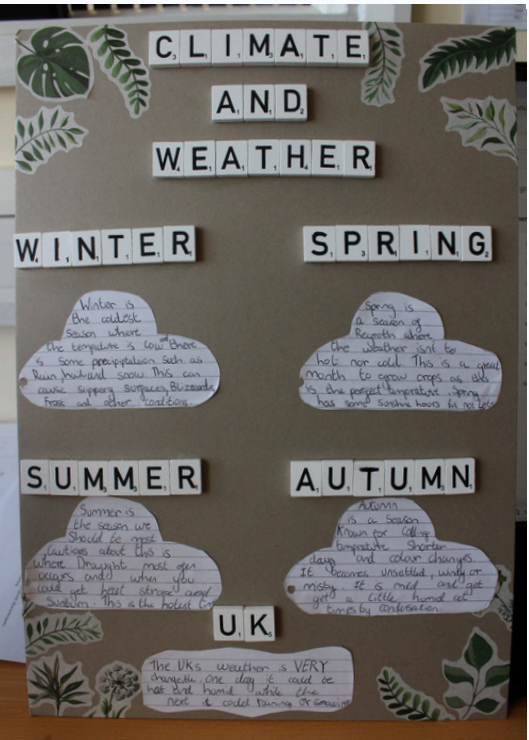 CLIMATE
AND
WEATHER
WINTER
SPRING
Winter is
the coldest
season where
the tempature is low and there
is some precipiptation such as
Rain, hail and snow. This can
cause slippery surfaces, Blizzards,
Frost and other conditions.
Spring is
a season of
Regroth where
the weather isnt to
hot nor cold. This is a great
month to grow crops as this
is the perfect temprature. Spring
has some sunshine hours but not lots
SUMMER
AUTUMN
Summer is
the season we
Should be most
Cautious about this is
where Draught most often
occurs and when you
could get heat stroke and
Sunburn. This is the hotest tim
Autumn
is a season
Known for Colling
temprature Shorter
days and colour changes.
It becomes unsettled, windy or
misty. It is mild and get
get a little humid at
times by condensation.
UK
The UKs weather is VERY
changeable. One day it could be
hot and humid while the
next it could raining or snowing